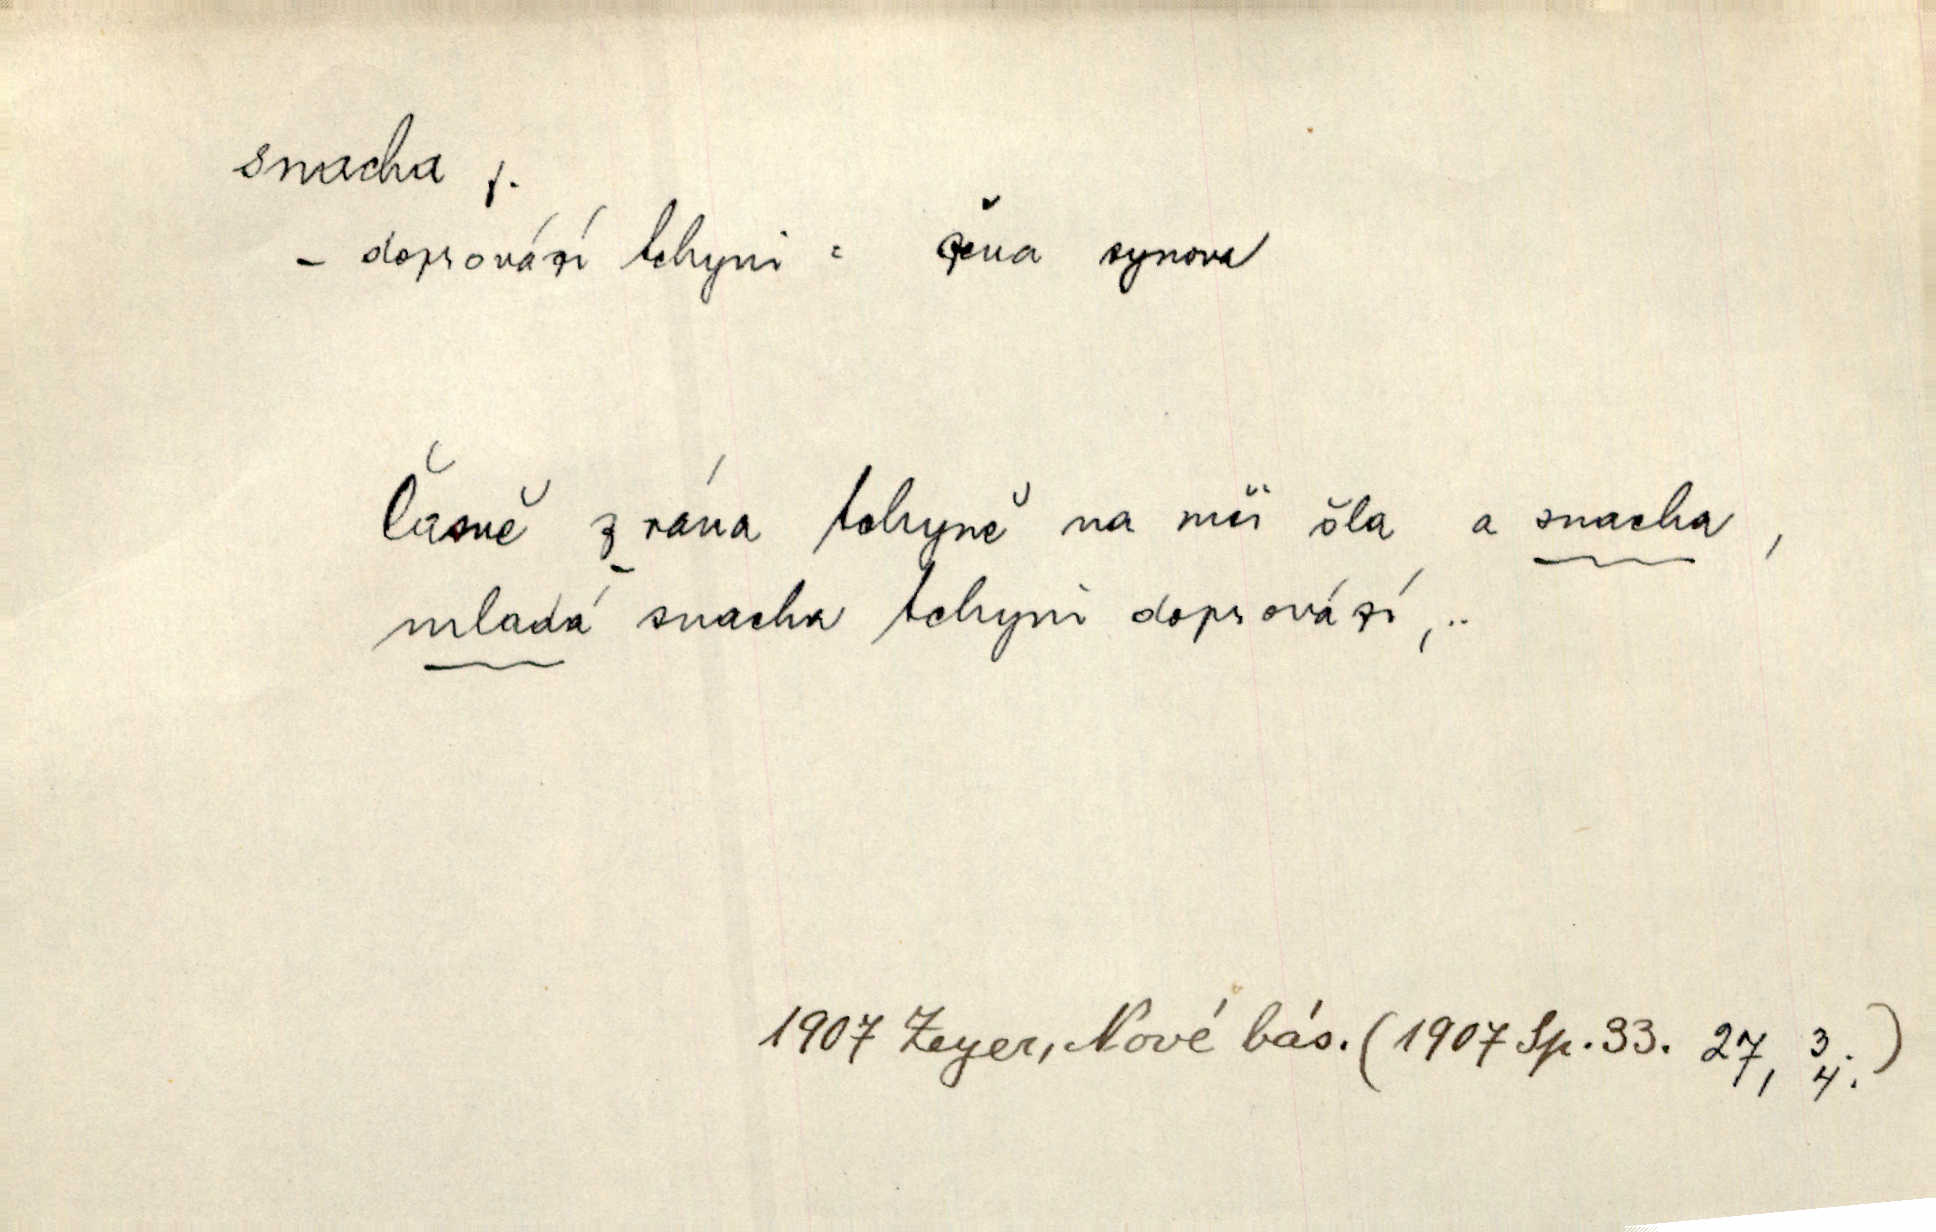 snacha f.
– doprovází tchyni = žena synova
Časně z rána tchyně na mši šla a snacha,
mladá snacha tchyni doprovází,..
1907 Zeyer, Nové bás. (1907 Sp. 33. 27, 3. 4.)